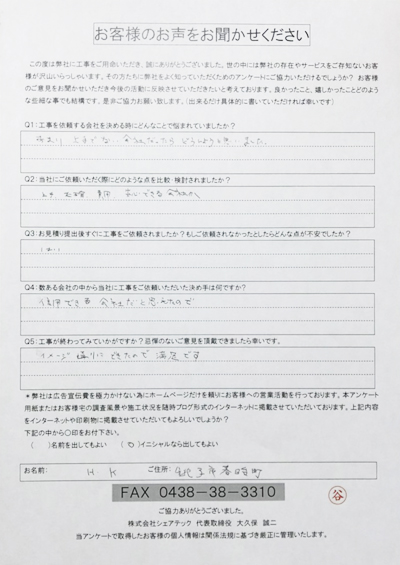 お客様のお声をお聞かせください
この度は弊社に工事をご用命いただき、誠にありがとうございました。世の中には弊社の存在やサービスをご存知ないお客様が沢山いらっしゃいます。その方たちに弊社をよく知っていただくためのアンケートにご協力いただけるでしょうか? お客様のご意見をお聞かせいただき今後の活動に反映させていただきたいと考えております。良かったこと、嬉しかったことどのような些細な事でも結構です。是非ご協力お願い致します。(出来るだけ具体的に書いていただければ幸いです)
Q1:工事を依頼する会社を決める時にどんなことで悩まれていましたか?
とんでもない 会社だったら どうしようと思いました。
Q2:当社にご依頼いただく際にどのような点を比較・検討されましたか?
安心できる会社か
Q3:お見積り提出後すぐに工事をご依頼されましたか?もしご依頼されなかったとしたらどんな点が不安でしたか?
はい
Q4:数ある会社の中から当社に工事をご依頼いただいた決め手は何ですか?
信用でき 会社だと思えたので
Q5:工事が終わってみていかがですか?忌憚のないご意見を頂戴できましたら幸いです。
イメージ通りにできたので 満足です
*弊社は広告宣伝費を極力かけない為にホームページだけを頼りにお客様への営業活動を行っております。本アンケート用紙またはお客様宅の調査風景や施工状況を随時ブログ形式のインターネットに掲載させていただいております。上記内容をインターネットや印刷物に掲載させていただいてもよろしいでしょうか?
下記の中から○印をお付下さい。
( )名前を出してもよい (○)イニシャルなら出してもよい
お名前: H K ご住所: 銚子市春日町
FAX 0438-38-3310
谷
ご協力ありがとうございました。
株式会社シェアテック 代表取締役 大久保 誠二
当アンケートで取得したお客様の個人情報は関係法規に基づき厳正に管理いたします。